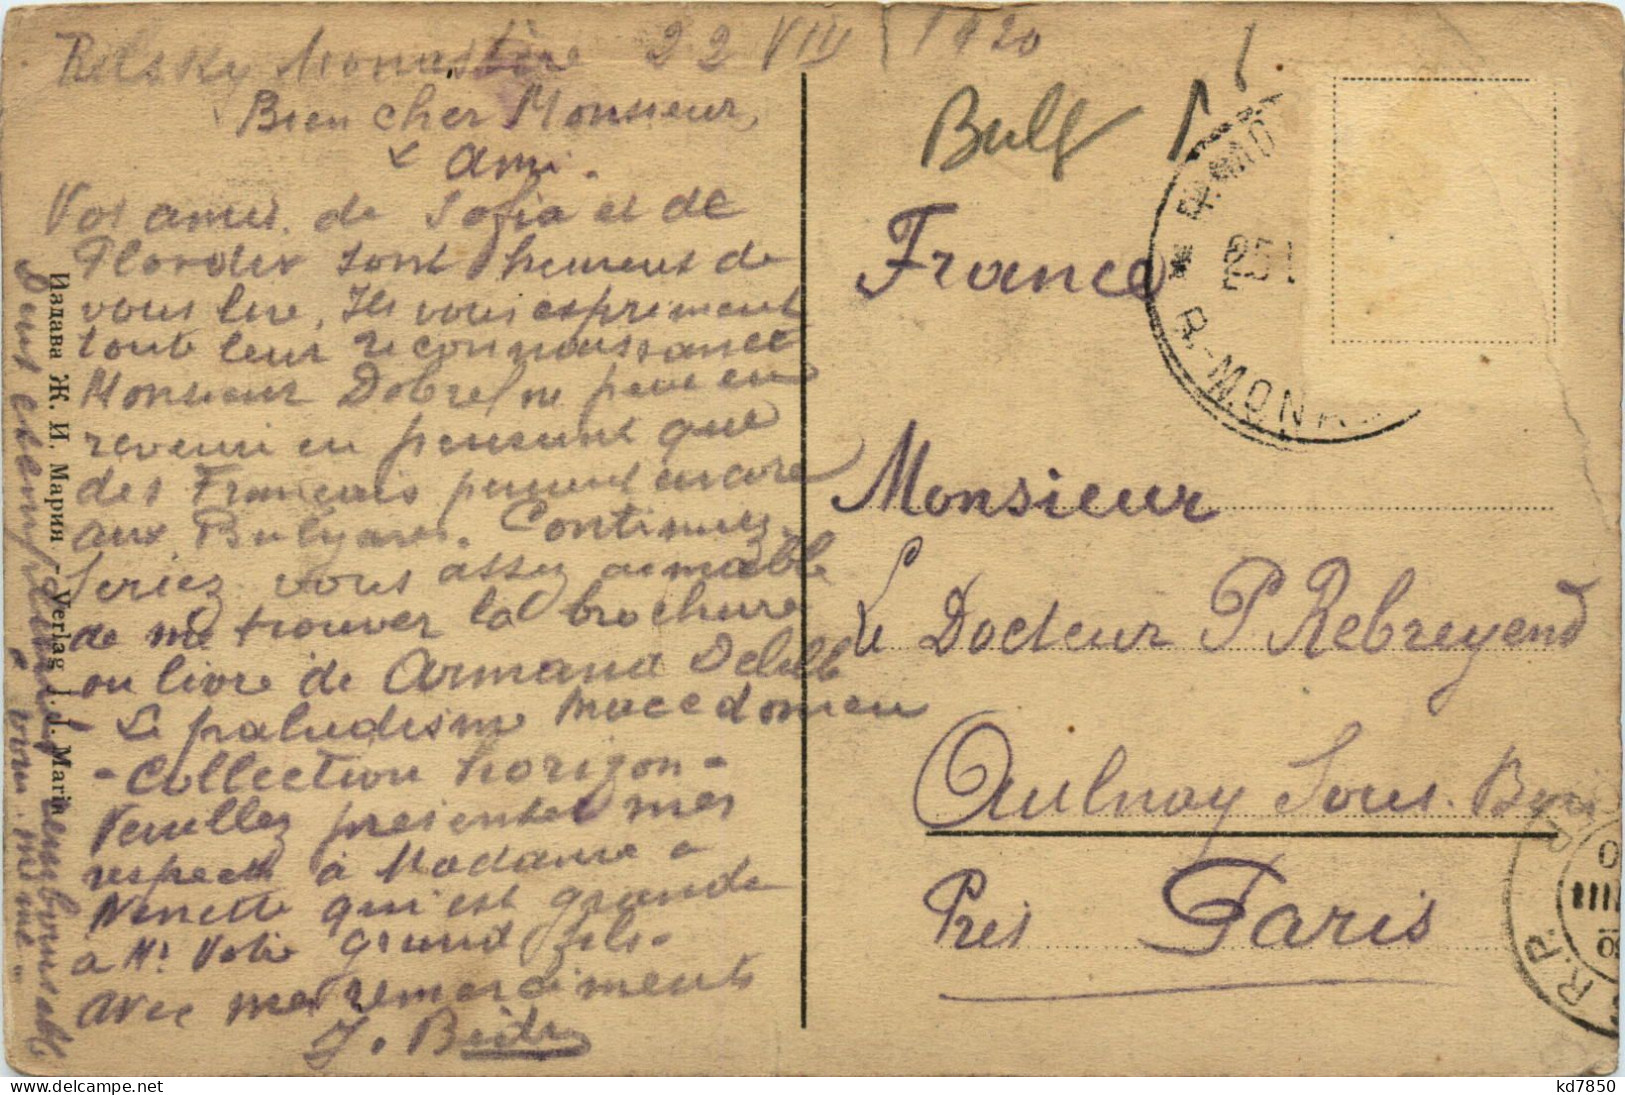 Rilsky Monastère 22 VIII 1920
Bien cher Monsieur,
& ami.
Vos amis de Sofia et de
sont heureux de
vous lire, Ils vous expriment
toute leur reconnaissance
Monsieur Dobre ne peut en
revenir en pensant que
des Français pensent encore
aux Bulgares. Continuez.
Seriez vous assez aimable
de me trouver la brochure
ou livre de Armand Delille
Le paludisme macedonien
- Collection horizon -
Veuillez presenter mes
respects à Madame à
Nenette qui est grande
à Mr Votre grand fils.
avec mes remerciments
J.
à vous-même
Издава Ж. И. Марин - Verlag J. J. Marin
Bulg
France
Monsieur
Le Docteur P. Rebreyend
Aulnay Sous-Bois
Près Paris
R.-MON
25
R.P.